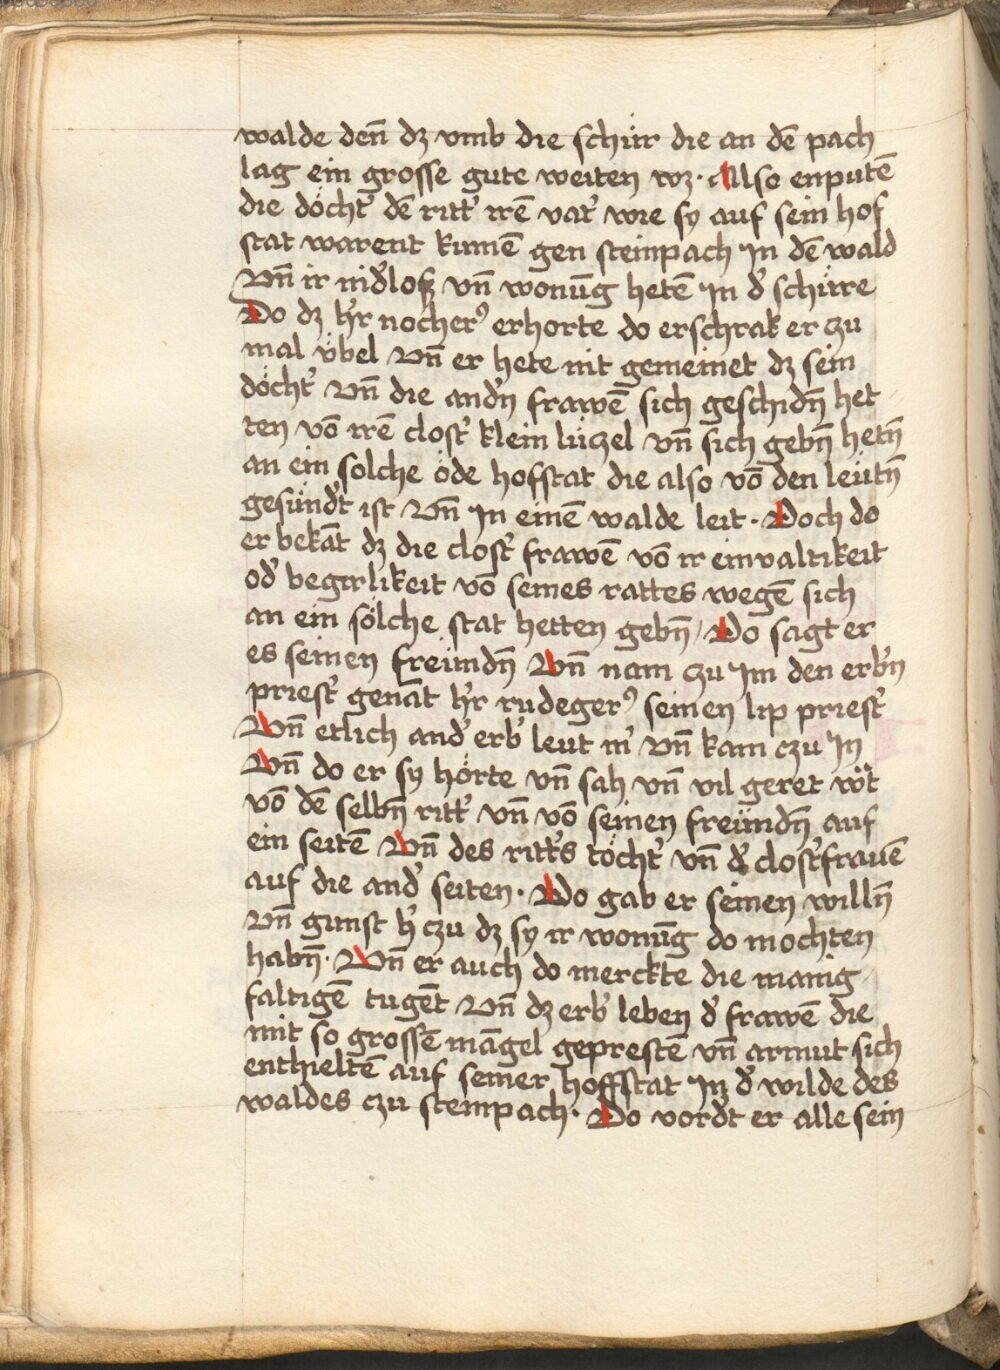 walde den̄ dz vmb die schür die an dē pach
lag ein grosse gute weiten wz · Allso enputē
die döcht̉ dē ritt̉ irē vat̉ wie sy auf sein hof
stat warent kumē gen steinpach Jn dē wald
Vn̄ ir nid̉losz vn̄ wonūg hetē Jn d̉ schüre
Do dz h̉r nocherꝰ erhorte do erschrak er czu
mal vbel Vn̄ er hete nit gemeinet dz sein
döcht̉ Vn̄ die and̉n frawē sich geschidn̄ het
ten vō irē clost̉ klein lüczel vn̄ sich gebn̄ hetn̄
an ein solche öde hofstat die also vō den leütn̄
gesünd̉t ist Vn̄ Jn einē walde leit · Doch do
er bekāt dz die clost̉ frawē vō ir einvaltikeit
od̉ begirlikeit vō seines rattes wegē sich
an ein sölche stat hetten gebn̄ / Do sagt er
es seinen freündn̄ Vn̄ nam czu Jm den erb̉n
priest̉ genāt h̉r rudegerꝰ seinen lip priest̉
Vn̄ etlich and̉ erb̉ leut m̉ vn̄ kam czu Jn
Vn̄ do er sy hörte vn̄ sah vn̄ vil geret wȯ̈t
vō dē selbn̄ ritt̉ vn̄ vō seinen freündn̄ auf
ein seitē Vn̄ des ritt̉s töcht̉ vn̄ d̉ clost̉frauē
auf die and̉ seiten · Do gab er seinen willn̄
vn̄ gunst h̉ czu dz sy ir wonūg do mochten
habn̄ · Vn̄ er auch do merckte die manig
faltigē tugēt Vn̄ dz erb̉ leben d̉ frawē die
mit so grossē māgel geprestē vn̄ armut sich
enthieltē auf seiner hoffstat Jn d̉ wilde des
waldes czu steinpach · Do vord̉t er alle sein